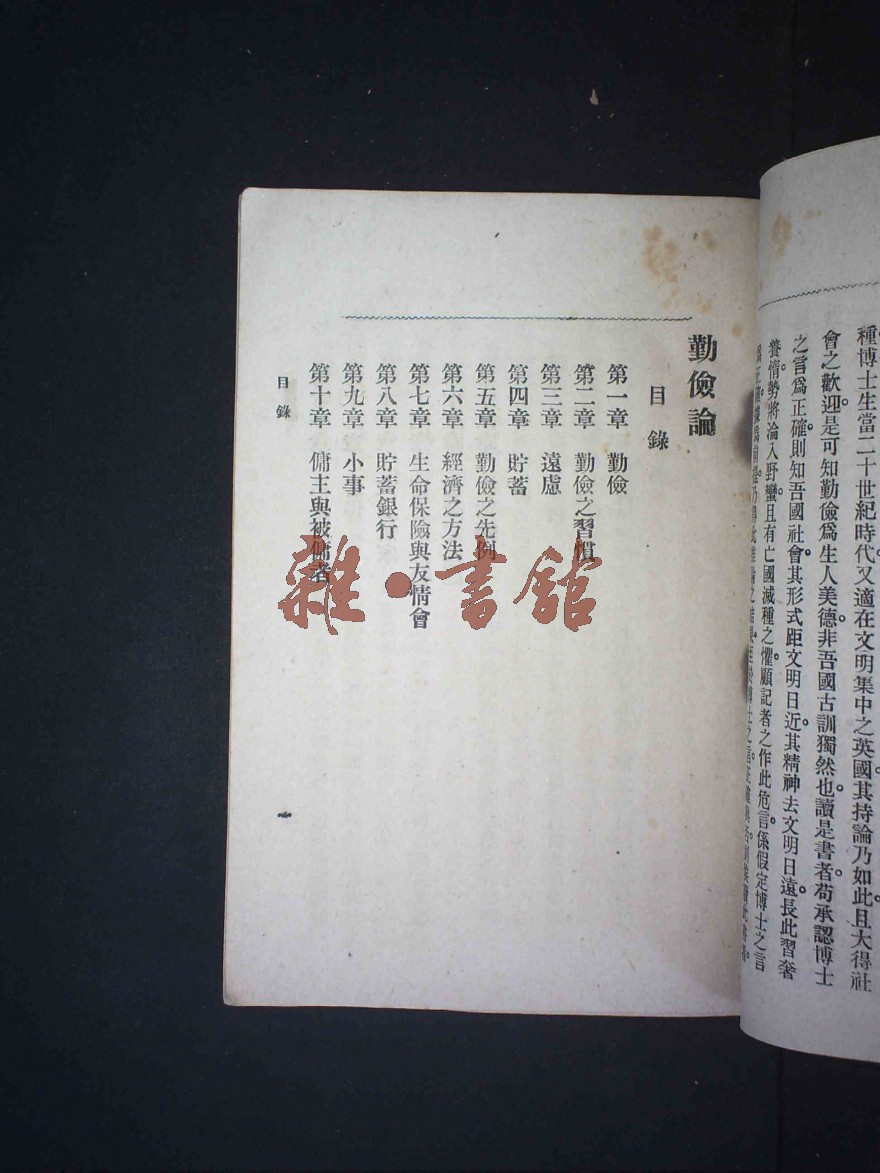 種博士生當二十世紀時代又適在文明集中之英國其持論乃如此且大得社
會之歡迎是可知勤儉爲生人美德非吾國古訓獨然也讀是書者苟承認博士
之言爲正確則知吾國社會其形式距文明日近其精神去文明日遠長此習奢
養惰勢將淪入野蠻且有亡國滅種之懼顧記者之作此危言係假定博士之言
勤儉論
目錄
第一章　勤儉
第二章　勤儉之習慣
第三章　遠慮
第四章　貯蓄
第五章　勤儉之先例
第六章　經濟之方法
第七章　生命保險與友情會
第八章　貯蓄銀行
第九章　小事
第十章　傭主與被傭者
目錄
一
雜·書館